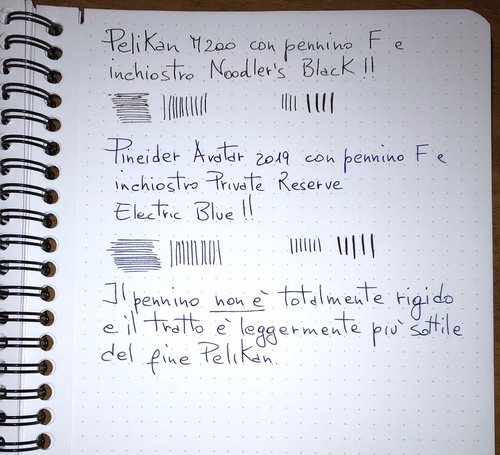 Pelikan M200 con pennino F e
inchiostro Noodler's Black!!
Pineider Avatar 2019 con pennino F e
inchiostro Private Reserve
Electric Blue!!
Il pennino non è totalmente rigido
e il tratto è leggermente più sottile
del fine Pelikan.